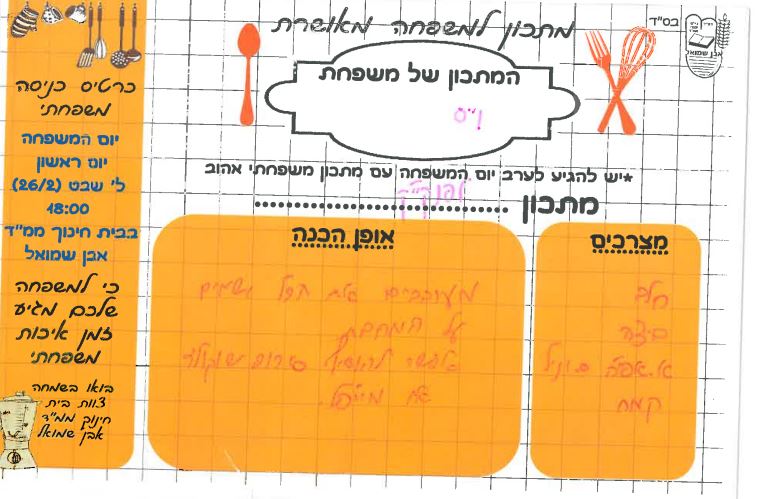 בס"ד
מתכון למשפחה מאושרת
המתכון של משפחת
ו"ס
אבן שמואל
*יש להגיע לערב יום המשפחה עם מתכון משפחתי אהוב
מתכון ........................................
מצרכים
חלב
ביצה
א.אפיה
קמח
אופן הכנה
מערבבים את הכל ושמים
על המחבת
אפשר להוסיף סירופ שוקולד
או מייפל.
כרטיס כניסה
משפחתי
יום המשפחה
יום ראשון
ל' שבט (26/2)
18:00
בבית חינוך ממ"ד
אבן שמואל
כי למשפחה
שלכם מגיע
זמן איכות
משפחתי
בואו בשמחה
צוות בית
חינוך ממ"ד
אבן שמואל